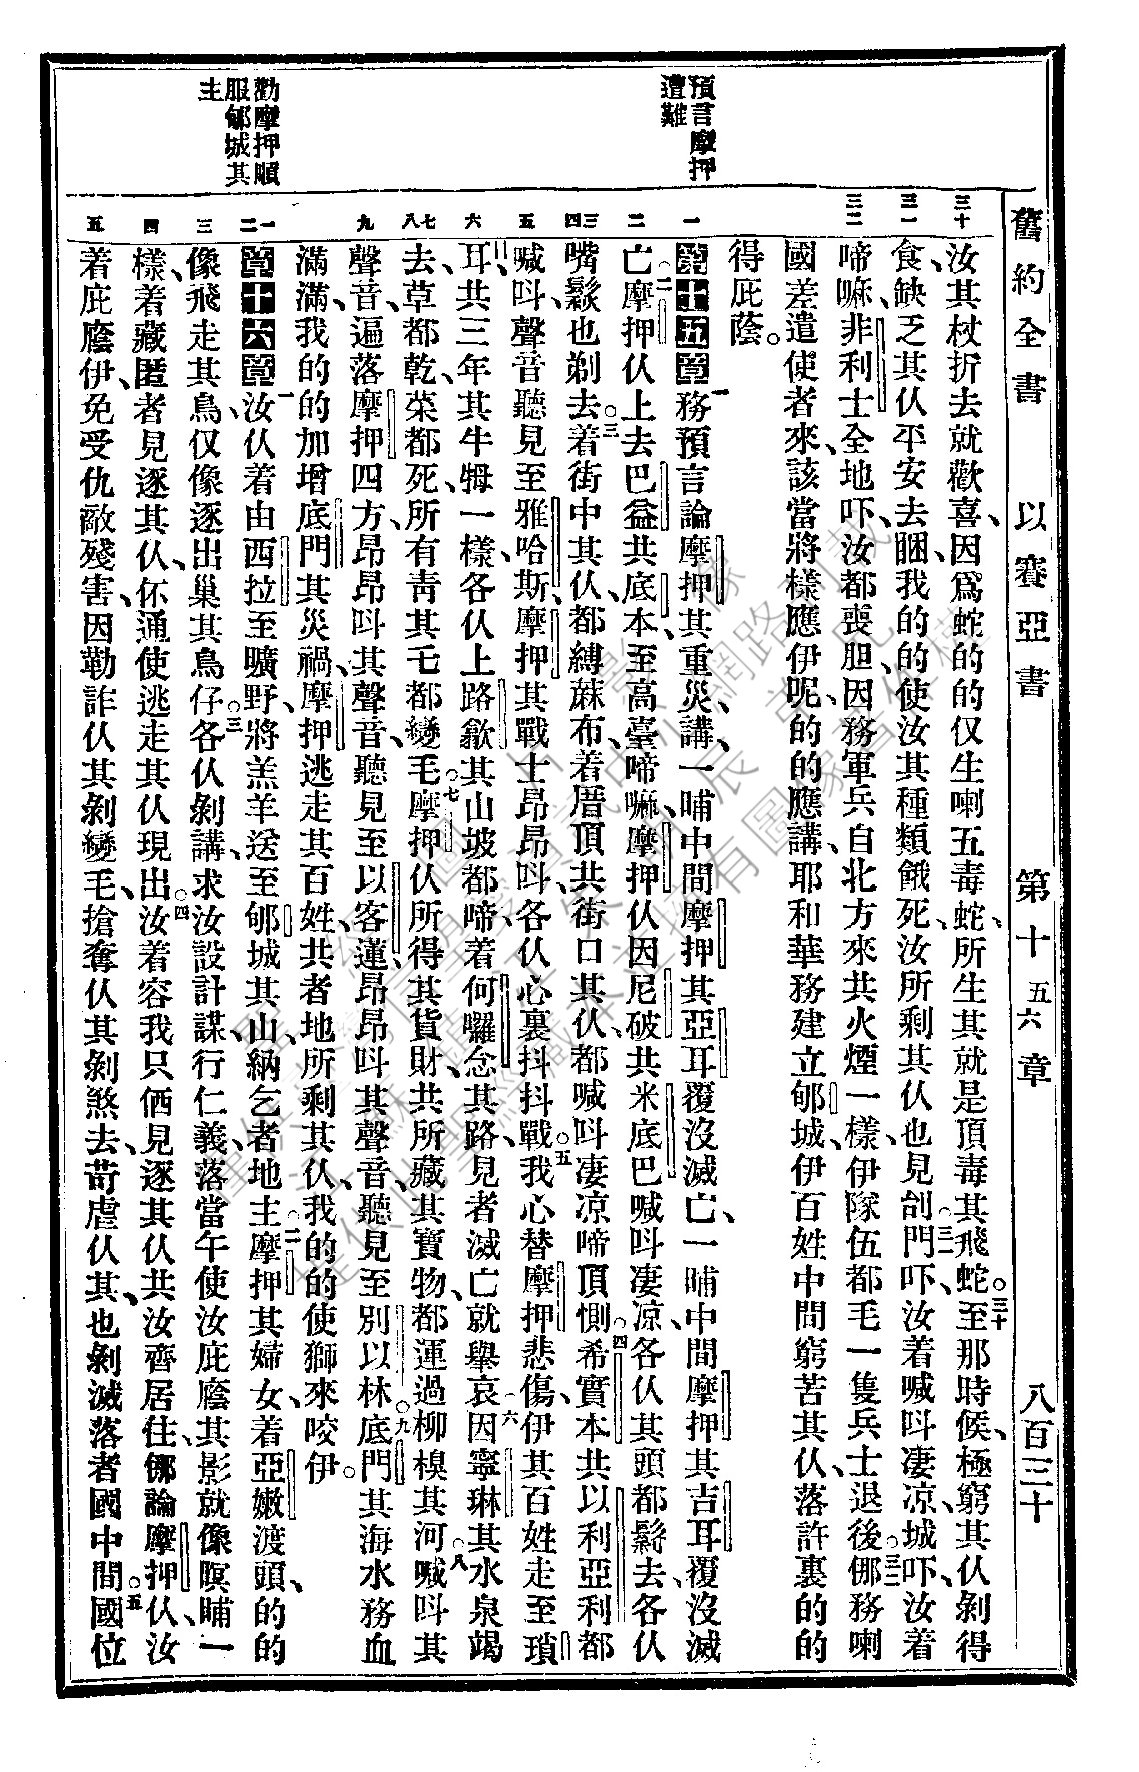 舊約全書　以賽亞書　第十五六章　八百三十
預言摩押
遭難
勸摩押順
服郇城其
主
三十
三一
三二
一
二
三
四
五
六
七
八
九
一
二
三
四
五
汝其杖折去就歡喜、因爲蛇的的仅生喇五毒蛇、所生其就是頂毒其飛蛇。三十至那時候、極窮其仈剝得
食、缺乏其仈平安去𥅴、我的的使汝其種類餓死、汝所剩其仈也見刣。三一門吓、汝着喊呌凄凉、城吓、汝着
啼嘛、非利士全地吓、汝都喪胆、因務軍兵自北方來共火煙一樣、伊隊伍都毛一隻兵士退後。三二㑚務喇
國差遣使者來、該當將樣應伊呢、的的應講、耶和華務建立郇城、伊百姓中間窮苦其仈、落許裏的的
得庇蔭。
第十五章 一務預言論摩押其重災講、一晡中間摩押其亞耳覆沒滅亡、一晡中間摩押其吉耳覆沒滅
亡。二摩押仈上去巴益共底本、至高臺啼嘛、摩押仈因尼破共米底巴喊呌凄凉、各仈其頭都鬎去、各仈
嘴鬚也剃去。三着街中其仈、都縛蔴布、着厝頂共街口其仈、都喊呌凄凉啼頂惻。四希實本共以利亞利都
喊呌、聲音聽見至雅哈斯、摩押其戰士昂昂呌、各仈心裏抖抖戰。五我心替摩押悲傷、伊其百姓走至瑣
耳、共三年其牛𤙩一樣、各仈上路歙其山坡都啼、着何囉念其路、見者滅亡就舉哀。六因寧琳其水泉竭
去、草都乾、菜都死、所有靑其乇都變毛。七摩押仈所得其貨財、共所藏其寶物、都運過柳模其河。八喊呌其
聲音、遍落摩押四方、昂昂呌其聲音、聽見至以客蓮、昂昂呌其聲音、聽見至別以林。九底門其海水務血
滿滿、我的的加增底門其災禍、摩押逃走其百姓、共者地所剩其仈、我的的使獅來咬伊。
第十六章 一汝仈着由西拉至曠野、將羔羊送至郇城其山、納乞者地主。二摩押其婦女、着亞嫩渡頭、的的
像飛走其鳥、仅像逐出巢其鳥仔。三各仈剝講、求汝設計謀、行仁義、落當午使汝庇廕其影就像暝晡一
樣、着藏匿者見逐其仈、伓通使逃走其仈現出。四汝着容我只㑚見逐其仈、共汝齊居住、㑚論摩押仈、汝
着庇廕伊、免受仇敵殘害、因勒詐仈其剝變毛、搶奪仈其剝煞去、苛虐仈其、也剝滅落者國中間。五國位